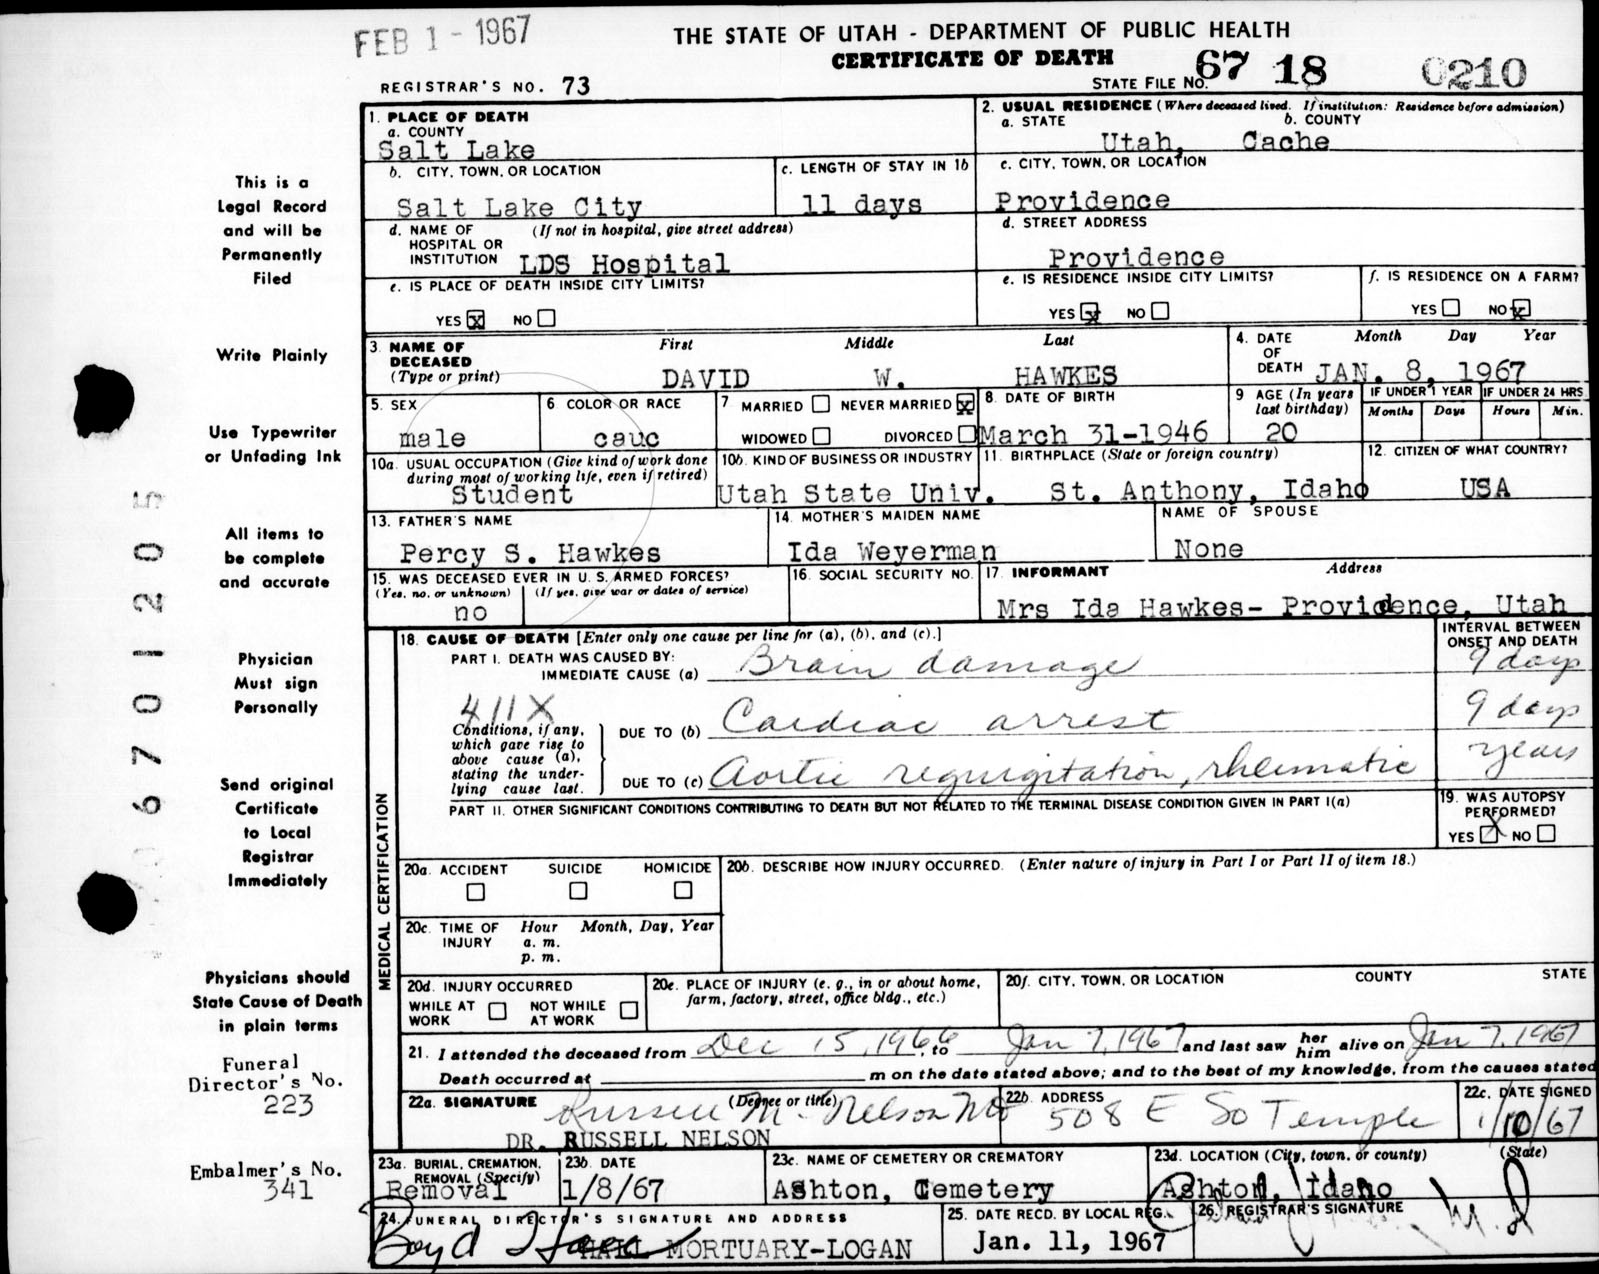 FEB 1 - 1967
THE STATE OF UTAH - DEPARTMENT OF PUBLIC HEALTH
CERTIFICATE OF DEATH
REGISTRAR'S NO. 73
STATE FILE NO. 67 18 0210
1. PLACE OF DEATH
a. COUNTY
Salt Lake
2. USUAL RESIDENCE (Where deceased lived. If institution: Residence before admission)
a. STATE b. COUNTY
Utah, Cache
b. CITY, TOWN, OR LOCATION
Salt Lake City
c. LENGTH OF STAY IN 1b
11 days
c. CITY, TOWN, OR LOCATION
Providence
d. NAME OF HOSPITAL OR INSTITUTION (If not in hospital, give street address)
LDS Hospital
d. STREET ADDRESS
Providence
e. IS PLACE OF DEATH INSIDE CITY LIMITS?
YES x NO
e. IS RESIDENCE INSIDE CITY LIMITS?
YES x NO
f. IS RESIDENCE ON A FARM?
YES NO x
3. NAME OF DECEASED (Type or print)
First Middle Last
DAVID W. HAWKES
4. DATE OF DEATH
Month Day Year
JAN. 8, 1967
5. SEX
male
6 COLOR OR RACE
cauc
7 MARRIED NEVER MARRIED x
WIDOWED DIVORCED
8. DATE OF BIRTH
March 31-1946
9 AGE (In years last birthday)
20
IF UNDER 1 YEAR
Months Days
IF UNDER 24 HRS.
Hours Min.
10a. USUAL OCCUPATION (Give kind of work done during most of working life, even if retired)
Student
10b. KIND OF BUSINESS OR INDUSTRY
Utah State Univ.
11. BIRTHPLACE (State or foreign country)
St. Anthony, Idaho
12. CITIZEN OF WHAT COUNTRY?
USA
13. FATHER'S NAME
Percy S. Hawkes
14. MOTHER'S MAIDEN NAME
Ida Weyerman
NAME OF SPOUSE
None
15. WAS DECEASED EVER IN U. S. ARMED FORCES?
(Yes, no, or unknown) (If yes, give war or dates of service)
no
16. SOCIAL SECURITY NO.
17. INFORMANT Address
Mrs Ida Hawkes- Providence, Utah
MEDICAL CERTIFICATION
18. CAUSE OF DEATH [Enter only one cause per line for (a), (b), and (c).]
INTERVAL BETWEEN ONSET AND DEATH
PART I. DEATH WAS CAUSED BY:
IMMEDIATE CAUSE (a) Brain damage 9 days
411X
Conditions, if any, which gave rise to above cause (a), stating the underlying cause last.
DUE TO (b) Cardiac arrest 9 days
DUE TO (c) Aortic regurgitation, rheumatic years
PART II. OTHER SIGNIFICANT CONDITIONS CONTRIBUTING TO DEATH BUT NOT RELATED TO THE TERMINAL DISEASE CONDITION GIVEN IN PART I(a)
19. WAS AUTOPSY PERFORMED?
YES X NO
20a. ACCIDENT SUICIDE HOMICIDE
20b. DESCRIBE HOW INJURY OCCURRED. (Enter nature of injury in Part I or Part II of item 18.)
20c. TIME OF INJURY Hour Month, Day, Year
a. m.
p. m.
20d. INJURY OCCURRED
WHILE AT WORK NOT WHILE AT WORK
20e. PLACE OF INJURY (e. g., in or about home, farm, factory, street, office bldg., etc.)
20f. CITY, TOWN, OR LOCATION COUNTY STATE
21. I attended the deceased from Dec 15, 1966, to Jan 7, 1967 and last saw her him alive on Jan 7, 1967
Death occurred at m on the date stated above; and to the best of my knowledge, from the causes stated
22a. SIGNATURE (Degree or title)
Russell M. Nelson MD
DR. RUSSELL NELSON
22b. ADDRESS
508 E So Temple
22c. DATE SIGNED
1/10/67
23a. BURIAL, CREMATION, REMOVAL (Specify)
Removal
23b. DATE
1/8/67
23c. NAME OF CEMETERY OR CREMATORY
Ashton, Cemetery
23d. LOCATION (City, town, or county) (State)
Ashton, Idaho
24. FUNERAL DIRECTOR'S SIGNATURE AND ADDRESS
Boyd
HALL MORTUARY-LOGAN
25. DATE RECD. BY LOCAL REG.
Jan. 11, 1967
26. REGISTRAR'S SIGNATURE
This is a
Legal Record
and will be
Permanently
Filed
Write Plainly
Use Typewriter
or Unfading Ink
All items to
be complete
and accurate
Physician
Must sign
Personally
Send original
Certificate
to Local
Registrar
Immediately
Physicians should
State Cause of Death
in plain terms
Funeral
Director's No.
223
Embalmer's No.
341
06701205